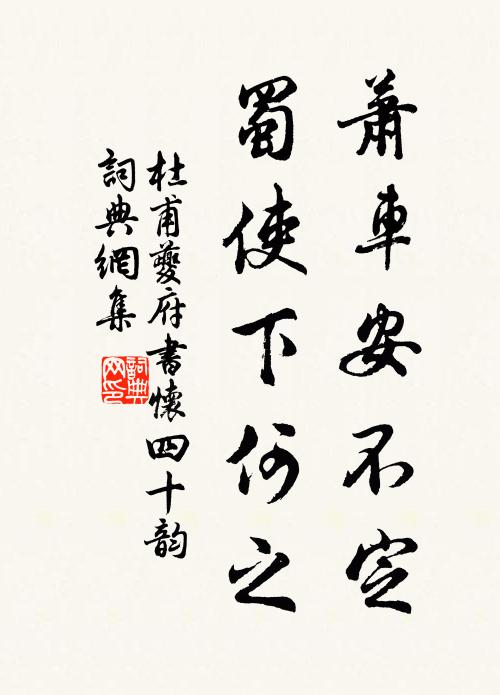 蕭車安不定
蜀使下何之
杜甫夔府書懷四十韵
詞典網集
詞典
網印